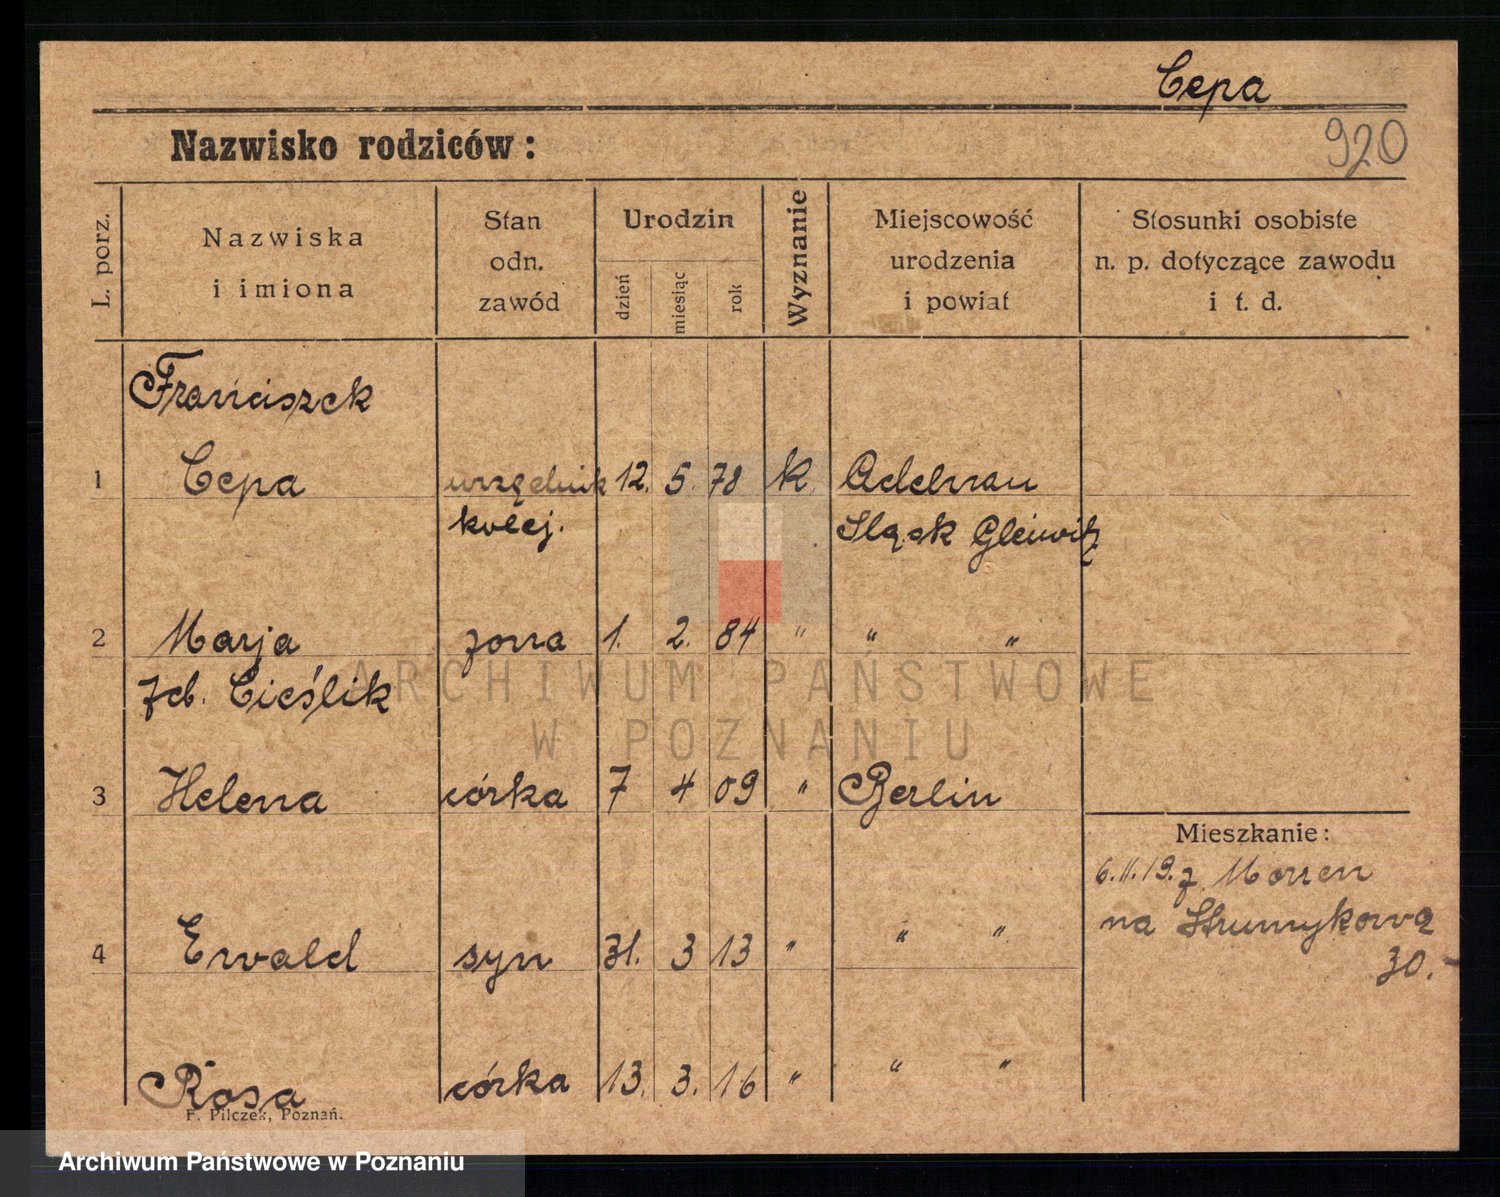 Cepa
Nazwisko rodziców:
920
L. porz.
Nazwiska
i imiona
Stan
odn.
zawód
Urodzin
dzień
miesiąc
rok
Wyznanie
Miejscowość
urodzenia
i powiat
Stosunki osobiste
n. p. dotyczące zawodu
i t. d.
Franciszek
1 Cepa urzędnik 12. 5. 78 k. Adelnau
kolej. Śląsk Gleiwitz
2 Marja żona 1. 2. 84 " " "
żeb. Cieślik
ARCHIWUM PAŃSTWOWE
W POZNANIU
3 Helena córka 7 4 09 " Berlin
Mieszkanie:
6.11.19. z
na Strumykową
30.-
4 Ewald syn 31. 3 13 " " "
Rosa córka 13. 3. 16 " " "
F. Pilczek, Poznań.
Archiwum Państwowe w Poznaniu